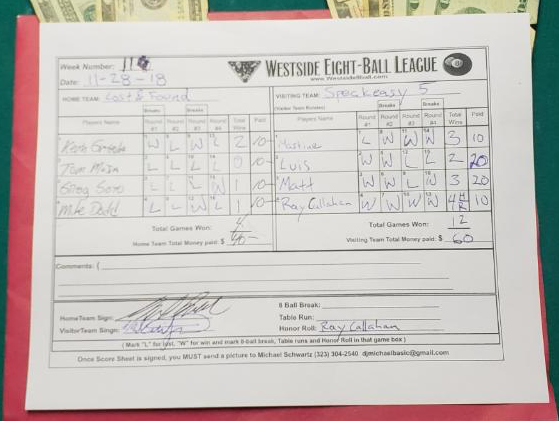 Week Number: 11
WESTSIDE EIGHT-BALL LEAGUE
www.Westside8ball.com
Date: 11-28-18
HOME TEAM: Lost & Found
VISITING TEAM: Speakeasy 5
(Visitor Team Breaks)
Breaks Breaks Breaks Breaks
Players Name Round #1 Round #2 Round #3 Round #4 Total Wins Paid Players Name Round #1 Round #2 Round #3 Round #4 Total Wins Paid
W L W L 2 10- L W W W 3 10
Tom L L L L 0 10- Luis W W L L 2 20
Greg Soto L L L W 1 10- Matt W W L W 3 20
Mike Dodd L L W L 1 10- Ray Callahan W W W W 4 HR 10
Total Games Won: 4 Total Games Won: 12
Home Team Total Money paid: $ 40- Visiting Team Total Money paid: $ 60
Comments: (
HomeTeam Sign: 8 Ball Break:
VisitorTeam Singn: Table Run:
Honor Roll: Ray Callahan
( Mark "L" for lost, "W" for win and mark 8-ball break, Table runs and Honor Roll in that game box )
Once Score Sheet is signed, you MUST send a picture to Michael Schwartz (323) 304-2540 djmichaelbasic@gmail.com